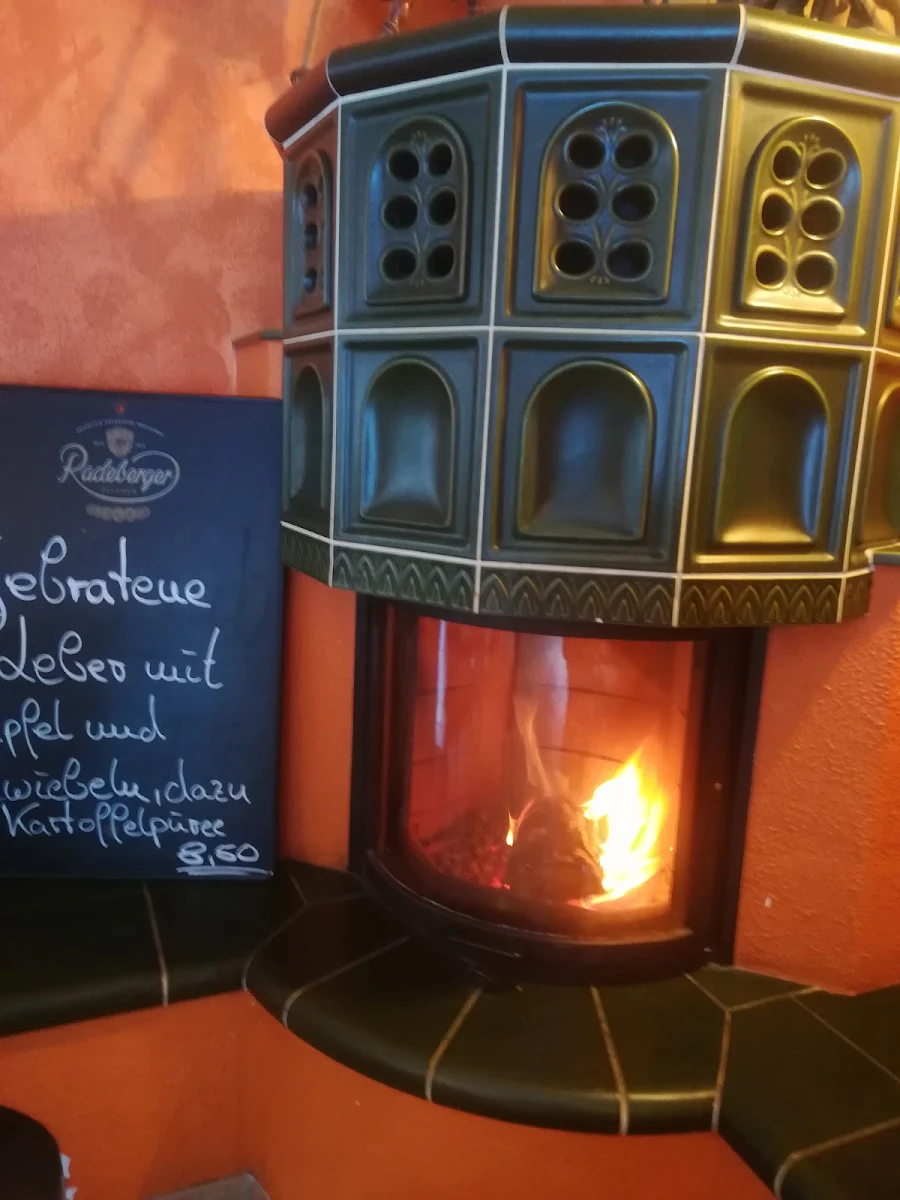 Radeberger
PILSNER
gebratene
Leber mit
pfel und
wiebeln, dazu
Kartoffelpüree
8,50